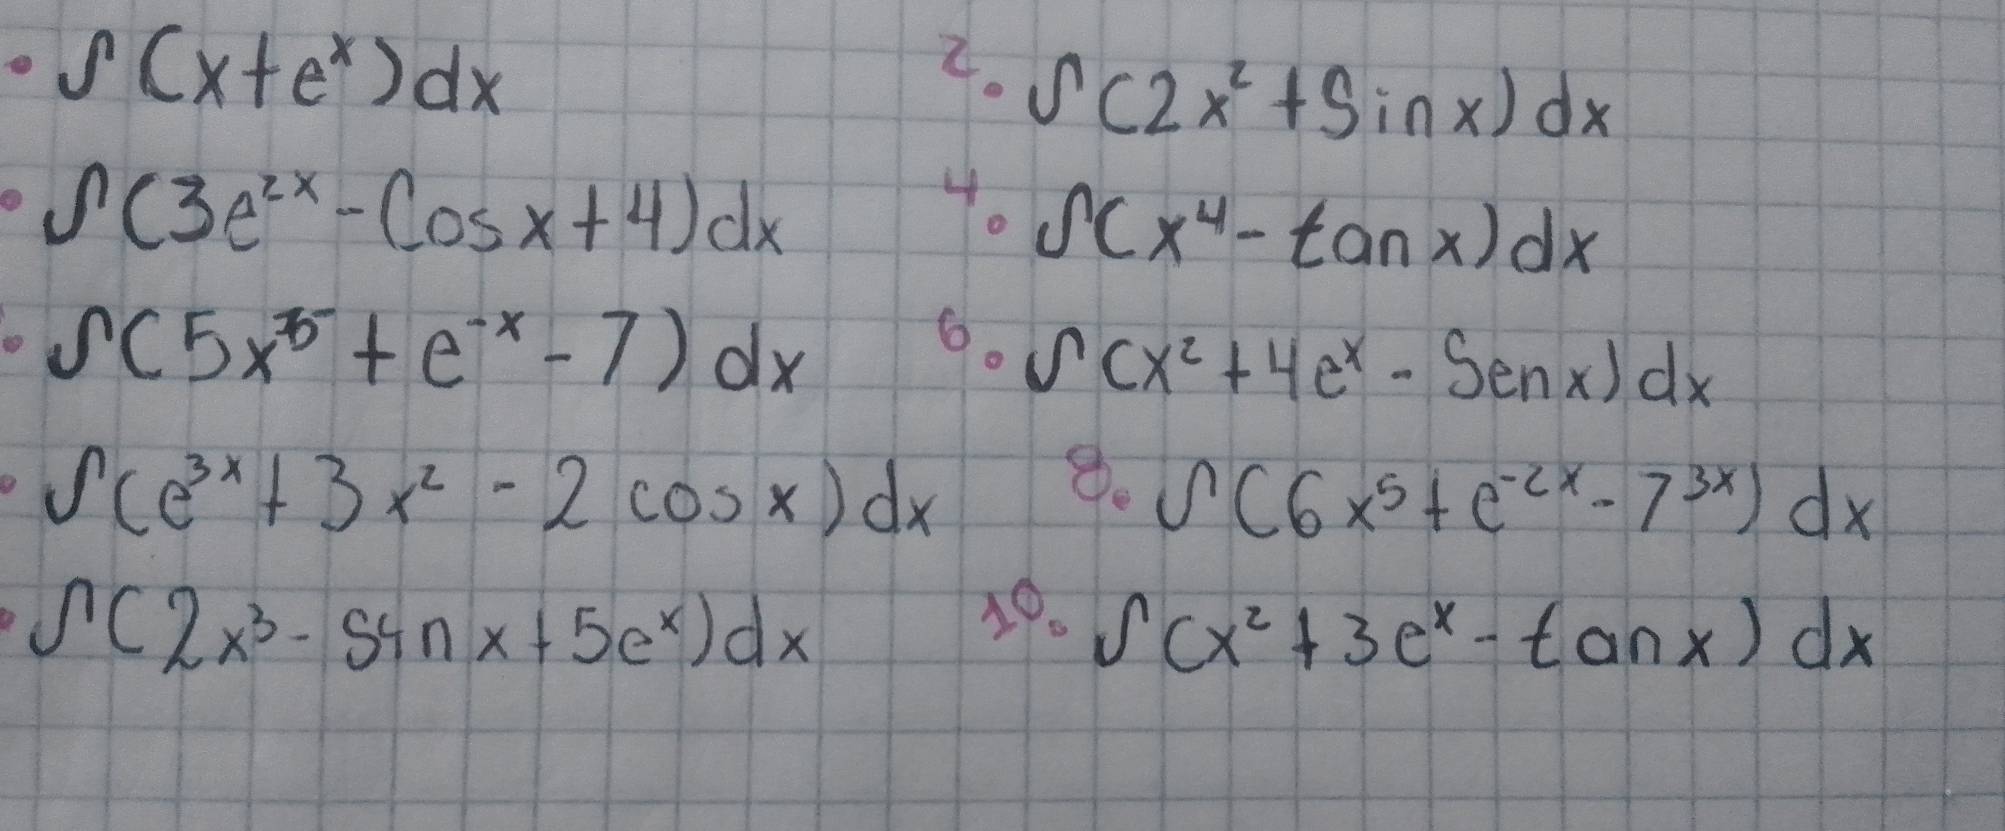 • ∫(x+eˣ)dx 2. ∫(2x²+Sinx)dx
• ∫(3e²ˣ-Cosx+4)dx 4. ∫(x⁴-tanx)dx
• ∫(5x⁵+e⁻ˣ-7)dx 6. ∫(x²+4eˣ-Senx)dx
• ∫(e³ˣ+3x²-2cosx)dx 8. ∫(6x⁵+e⁻²ˣ-7³ˣ)dx
• ∫(2x³-sinx+5eˣ)dx 10. ∫(x²+3eˣ-tanx)dx